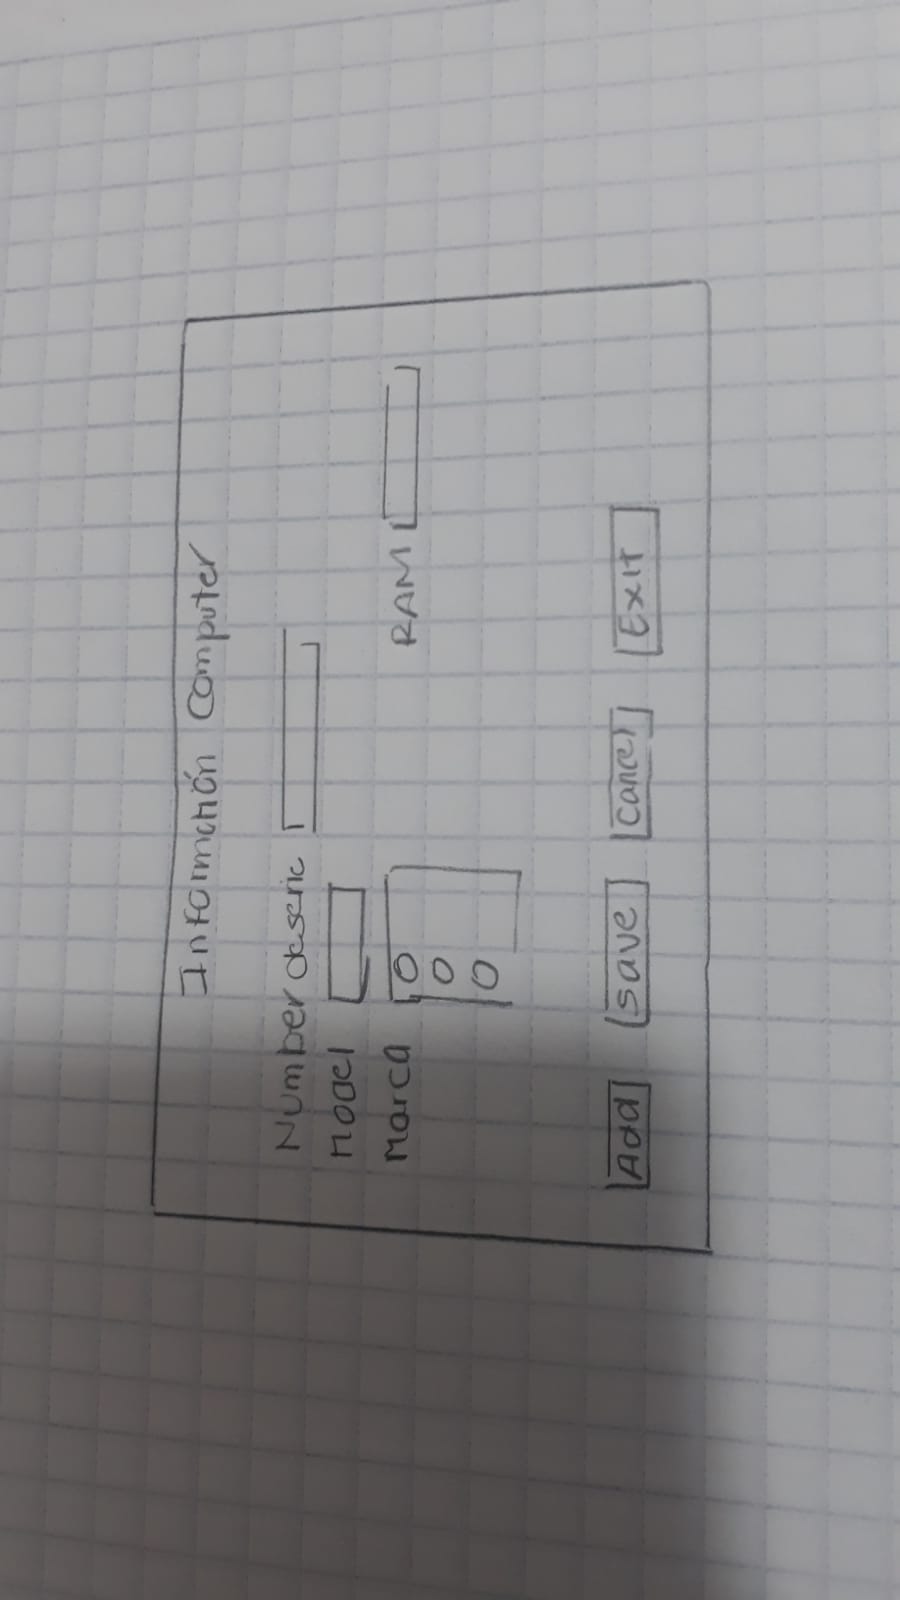 Informatión Computer
Number de serie
Model
Marca
RAM
Add Save Cancel Exit